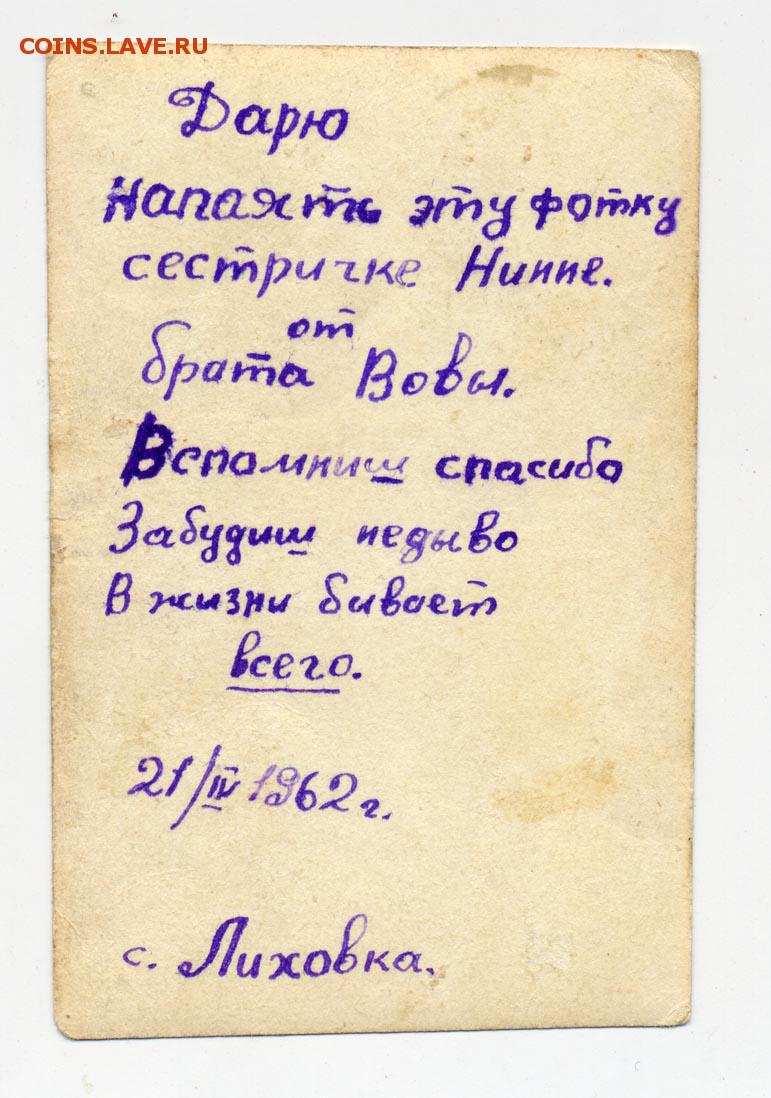 COINS.LAVE.RU
Дарю
напаять эту фотку
сестричке Нинне.
от
брата Вовы.
Вспомниш спасибо
Забудиш недыво
В жизни бывает
всего.
21/IV 1962 г.
с. Лиховка.